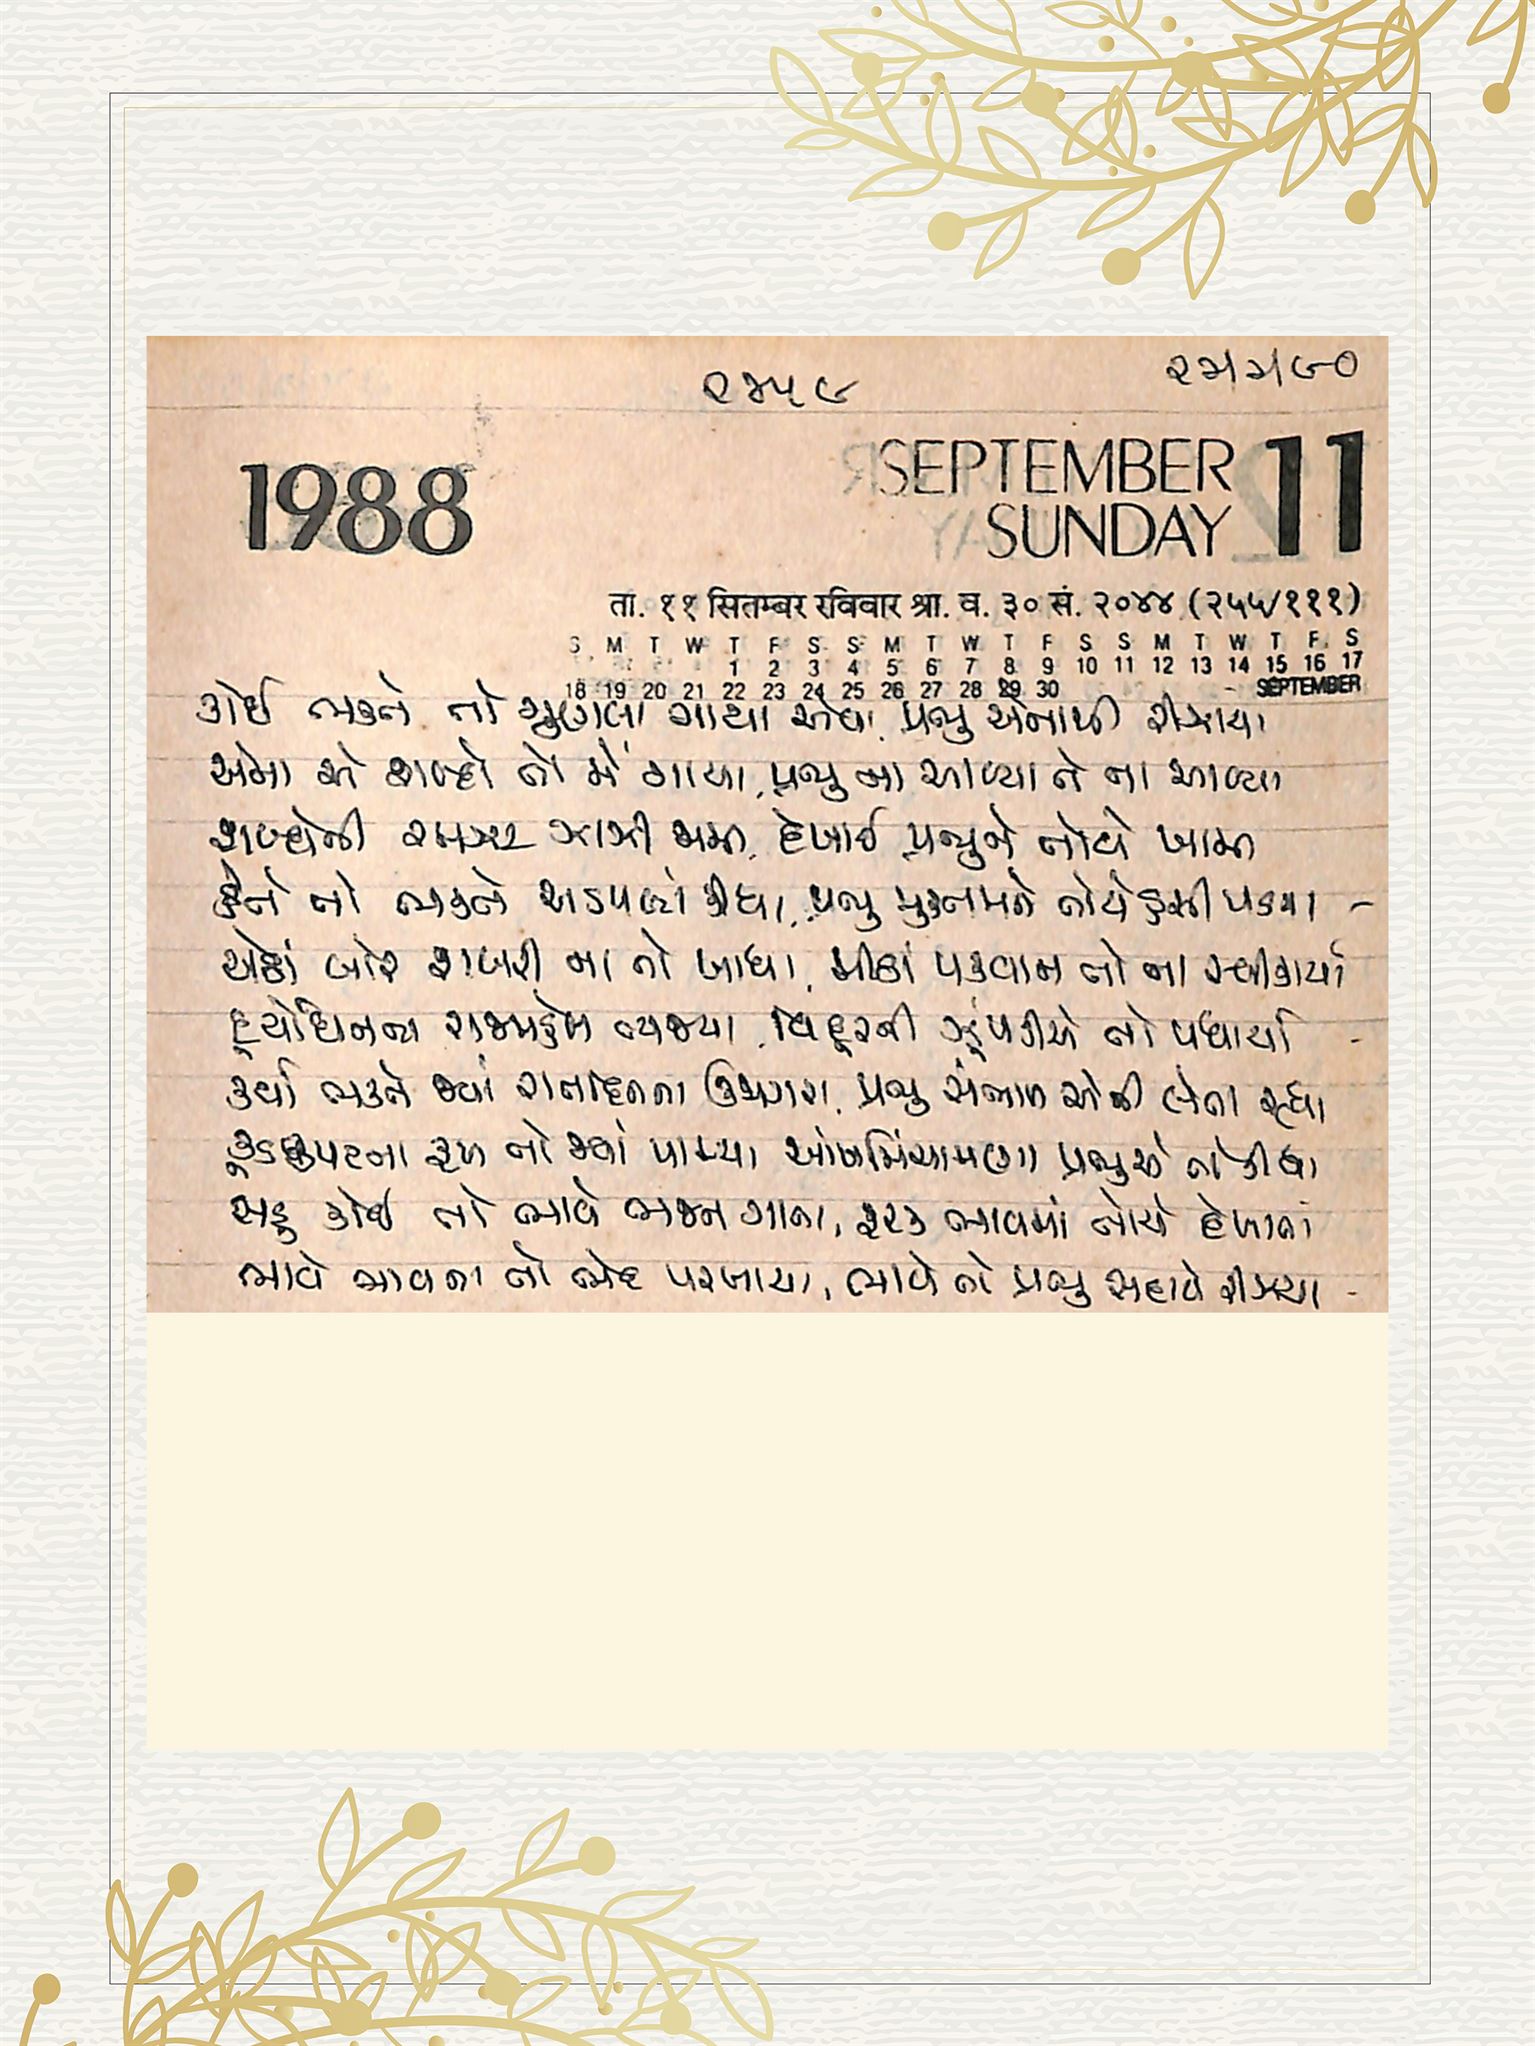 ૨૪૫૯
૨૪|૪|૯૦
1988
SEPTEMBER 11
SUNDAY
ता. ११ सितम्बर रविवार श्रा. व. ३० सं. २०४४ (२५५/१११)
S M T W T F S S M T W T F S S M T W T F S
1 2 3 4 5 6 7 8 9 10 11 12 13 14 15 16 17
18 19 20 21 22 23 24 25 26 27 28 29 30 SEPTEMBER
કોઈ ભક્તે તો ગુણલા ગાયા એવા, પ્રભુ એનાથી રીઝાયા
એમા એ શબ્દો તો મેં ગાયા, પ્રભુ ના આવ્યા તે ના આવ્યા
શબ્દોની રમઝટ ઝાઝી દેખાઈ પ્રભુને તોયે ખામી
કંઈને તો ભક્તે અડપલાં કીધા, પ્રભુ તોયે હસી પડયા -
એઠાં બોર શબરી ના તો ખાધા, મીઠાં પકવાન તો ના સ્વીકાર્યા
દૂર્યોધનના રાજમહેલ ત્યજ્યા, વિદૂરની ઝૂંપડીએ તો પધાર્યા -
કર્યા ભક્તે જ્યાં રાતદિનના ઉજાગરા, પ્રભુ સંભાળ એની લેતા રહ્યા
કૂડકપટના રૂખ તો જ્યાં પામ્યા આંખમિંચામણા પ્રભુએ તો કીધા
સહુ કોઈ તો ભાવે ભજન ગાતા, ફરક ભાવમાં તોયે દેખાતા
ભાવે ભાવના તો ભેદ પરખાયા, ભાવે તો પ્રભુ સદાયે રીઝ્યા -